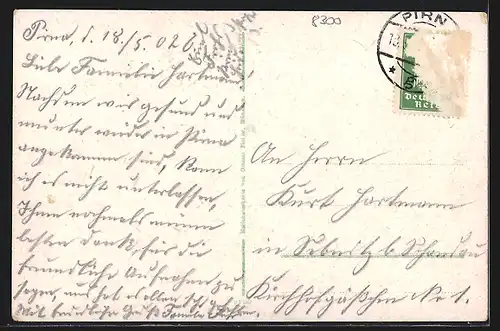 Pirna, d. 18./5. 02
Liebe Familie Hartmann!
Nachdem wir gesund und
munter wieder in Pirna
angekommen sind, kann
ich es nicht unterlassen,
Ihnen nochmals meinen
besten Dank, für die
freundliche Aufnahme zu
sagen, uns hat es allen sehr
Mit freundlichem Gruß Familie
8300
PIRN
Deut
Reic
An Herrn
Kurt Hartmann
in Sebnitz b. Schandau
Kirchhofgäßchen No 1.